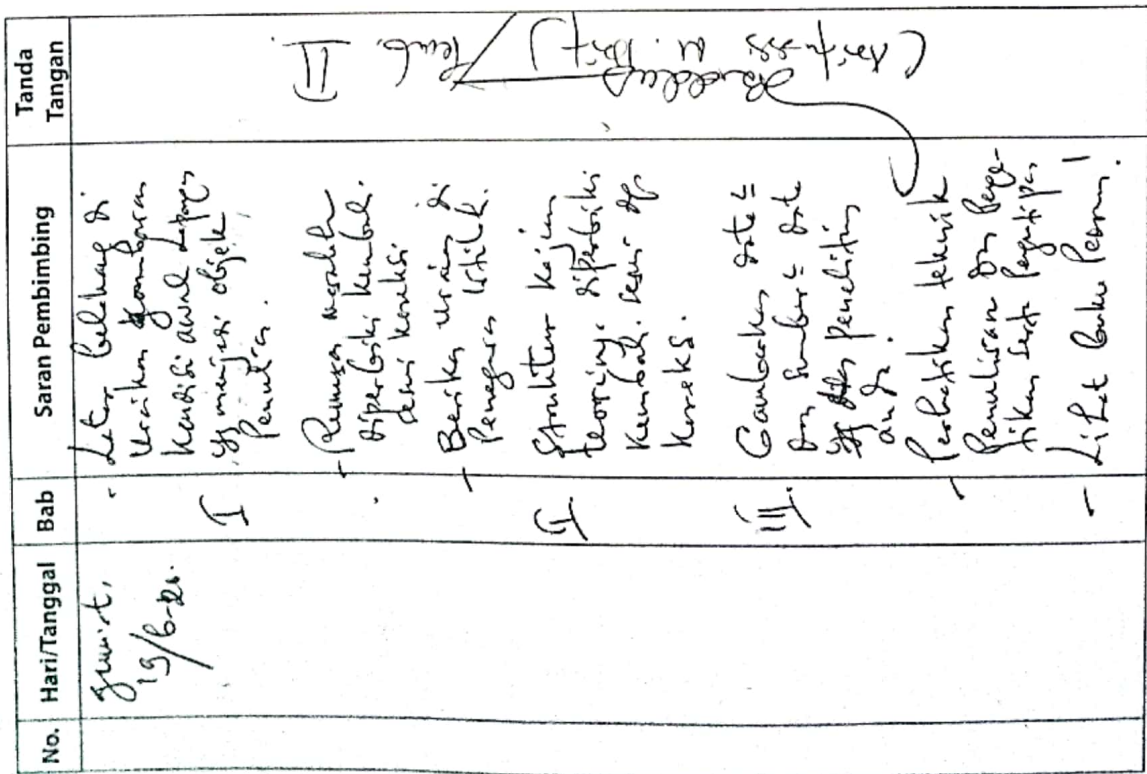 No. Hari/Tanggal Bab Saran Pembimbing Tanda Tangan
Jum'at,
19/6-20.
I
- Latar belakang di
uraikan gambaran
kondisi awal
yg menjadi objek
Penulis.
- Rumusan masalah
diperbaiki kembali.
sesuai koreksi
- Berikan uraian di
Penegasan istilah.
II.
Struktur kajian
teorinya diperbaiki
kembali. sesuai dg
koreksi.
III.
Gambarkan data =
dan sumber = data
yg penelitian
anda.
- Perhatikan teknik
Penulisan dan Penge-
tikan serta Pengutipan
- Lihat buku Pedoman!
Pemb. II